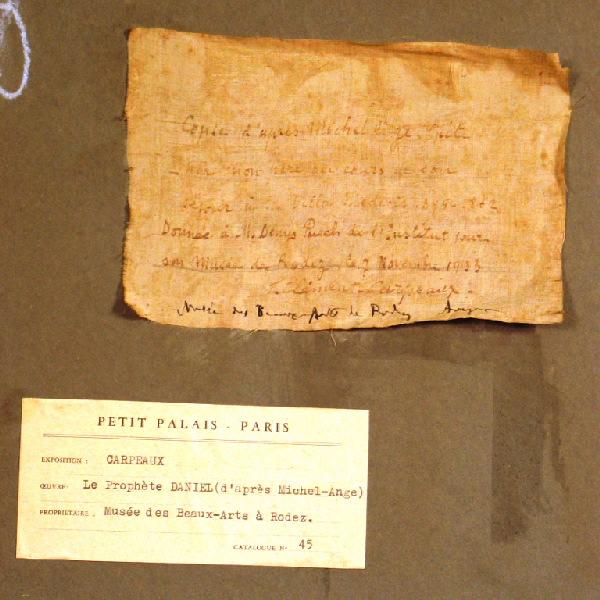 Copie d'après Michel Ange faite
par mon père au cours de son
séjour à la Villa Medicis
Donnée à M. Denys Puech de l'Institut pour
son Musée de Rodez le 7 Novembre 1933
Clément Carpeaux
Musée des Beaux-Arts de Rodez Aveyron
PETIT PALAIS - PARIS
EXPOSITION : CARPEAUX
ŒUVRE : Le Prophète DANIEL(d'après Michel-Ange)
PROPRIÉTAIRE : Musée des Beaux-Arts à Rodez.
CATALOGUE N° 45